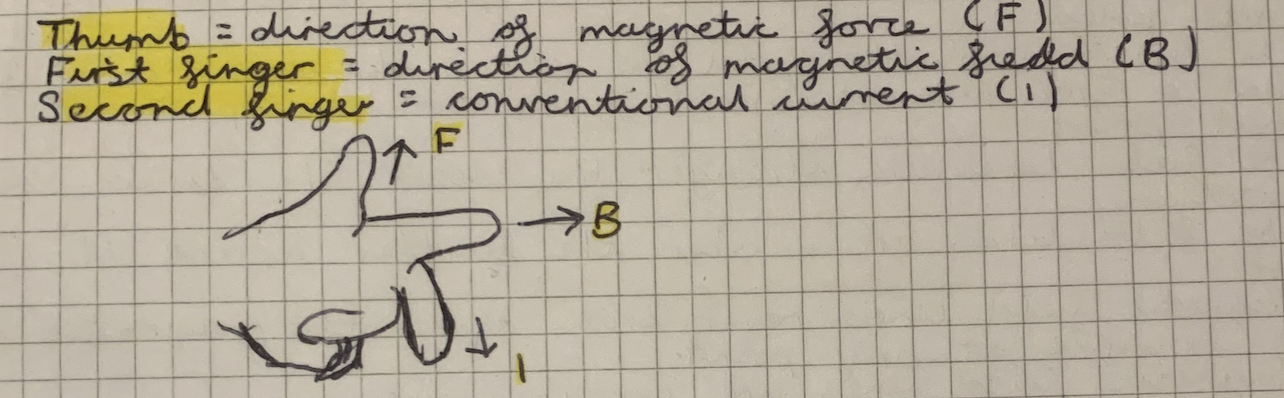 Thumb = direction of magnetic force (F)
First finger = direction of magnetic field (B)
Second finger = conventional current (I)
F
B
I